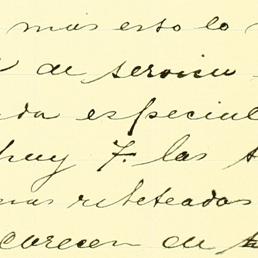 mas esto lo
de servicio
da especial
hay 7. las
mas reteadas
Carecen de